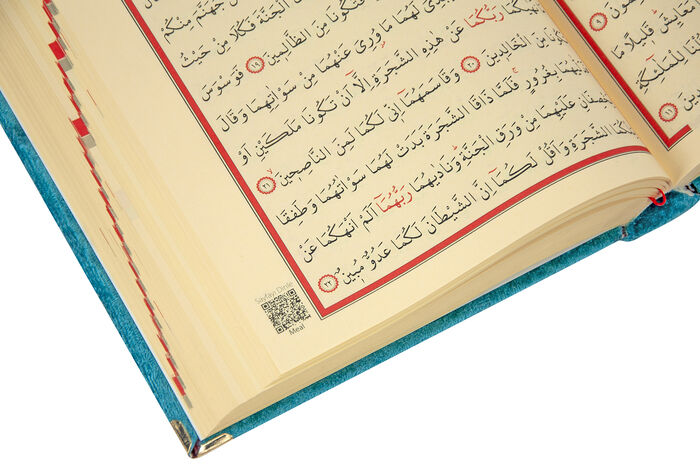 جَهَنَّمَ مِنْكُمْ
الْجَنَّةَ فَكُلَا مِنْ حَيْثُ
فَتَكُونَا مِنَ الظَّالِم۪ينَ ﴿١٩﴾ فَوَسْوَسَ
لَهُمَا مَا وُ۫رِيَ عَنْهُمَا مِنْ سَوْاٰتِهِمَا وَقَالَ
رَبُّكُمَا عَنْ هٰذِهِ الشَّجَرَةِ اِلَّٓا اَنْ تَكُونَا مَلَكَيْنِ اَوْ
مِنَ الْخَالِد۪ينَ ﴿٢٠﴾ وَقَاسَمَهُمَٓا اِنّ۪ي لَكُمَا لَمِنَ النَّاصِح۪ينَۙ ﴿٢١﴾
بِغُرُورٍۚ فَلَمَّا ذَاقَا الشَّجَرَةَ بَدَتْ لَهُمَا سَوْاٰتُهُمَا وَطَفِقَا
عَلَيْهِمَا مِنْ وَرَقِ الْجَنَّةِۜ وَنَادٰيهُمَا رَبُّهُمَٓا اَلَمْ اَنْهَكُمَا عَنْ
الشَّجَرَةِ وَاَقُلْ لَكُمَٓا اِنَّ الشَّيْطَانَ لَكُمَا عَدُوٌّ مُب۪ينٌ ﴿٢٢﴾
Sayfayı Dinle
Meal
﴿٩﴾
قَل۪يلًا مَا
لِلْمَلٰٓئِكَةِ
﴿١١﴾